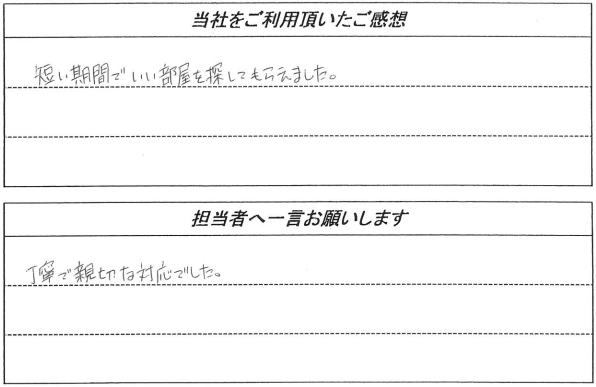 当社をご利用頂いたご感想
短い期間でいい部屋を探してもらえました。
担当者へ一言お願いします
丁寧で親切な対応でした。